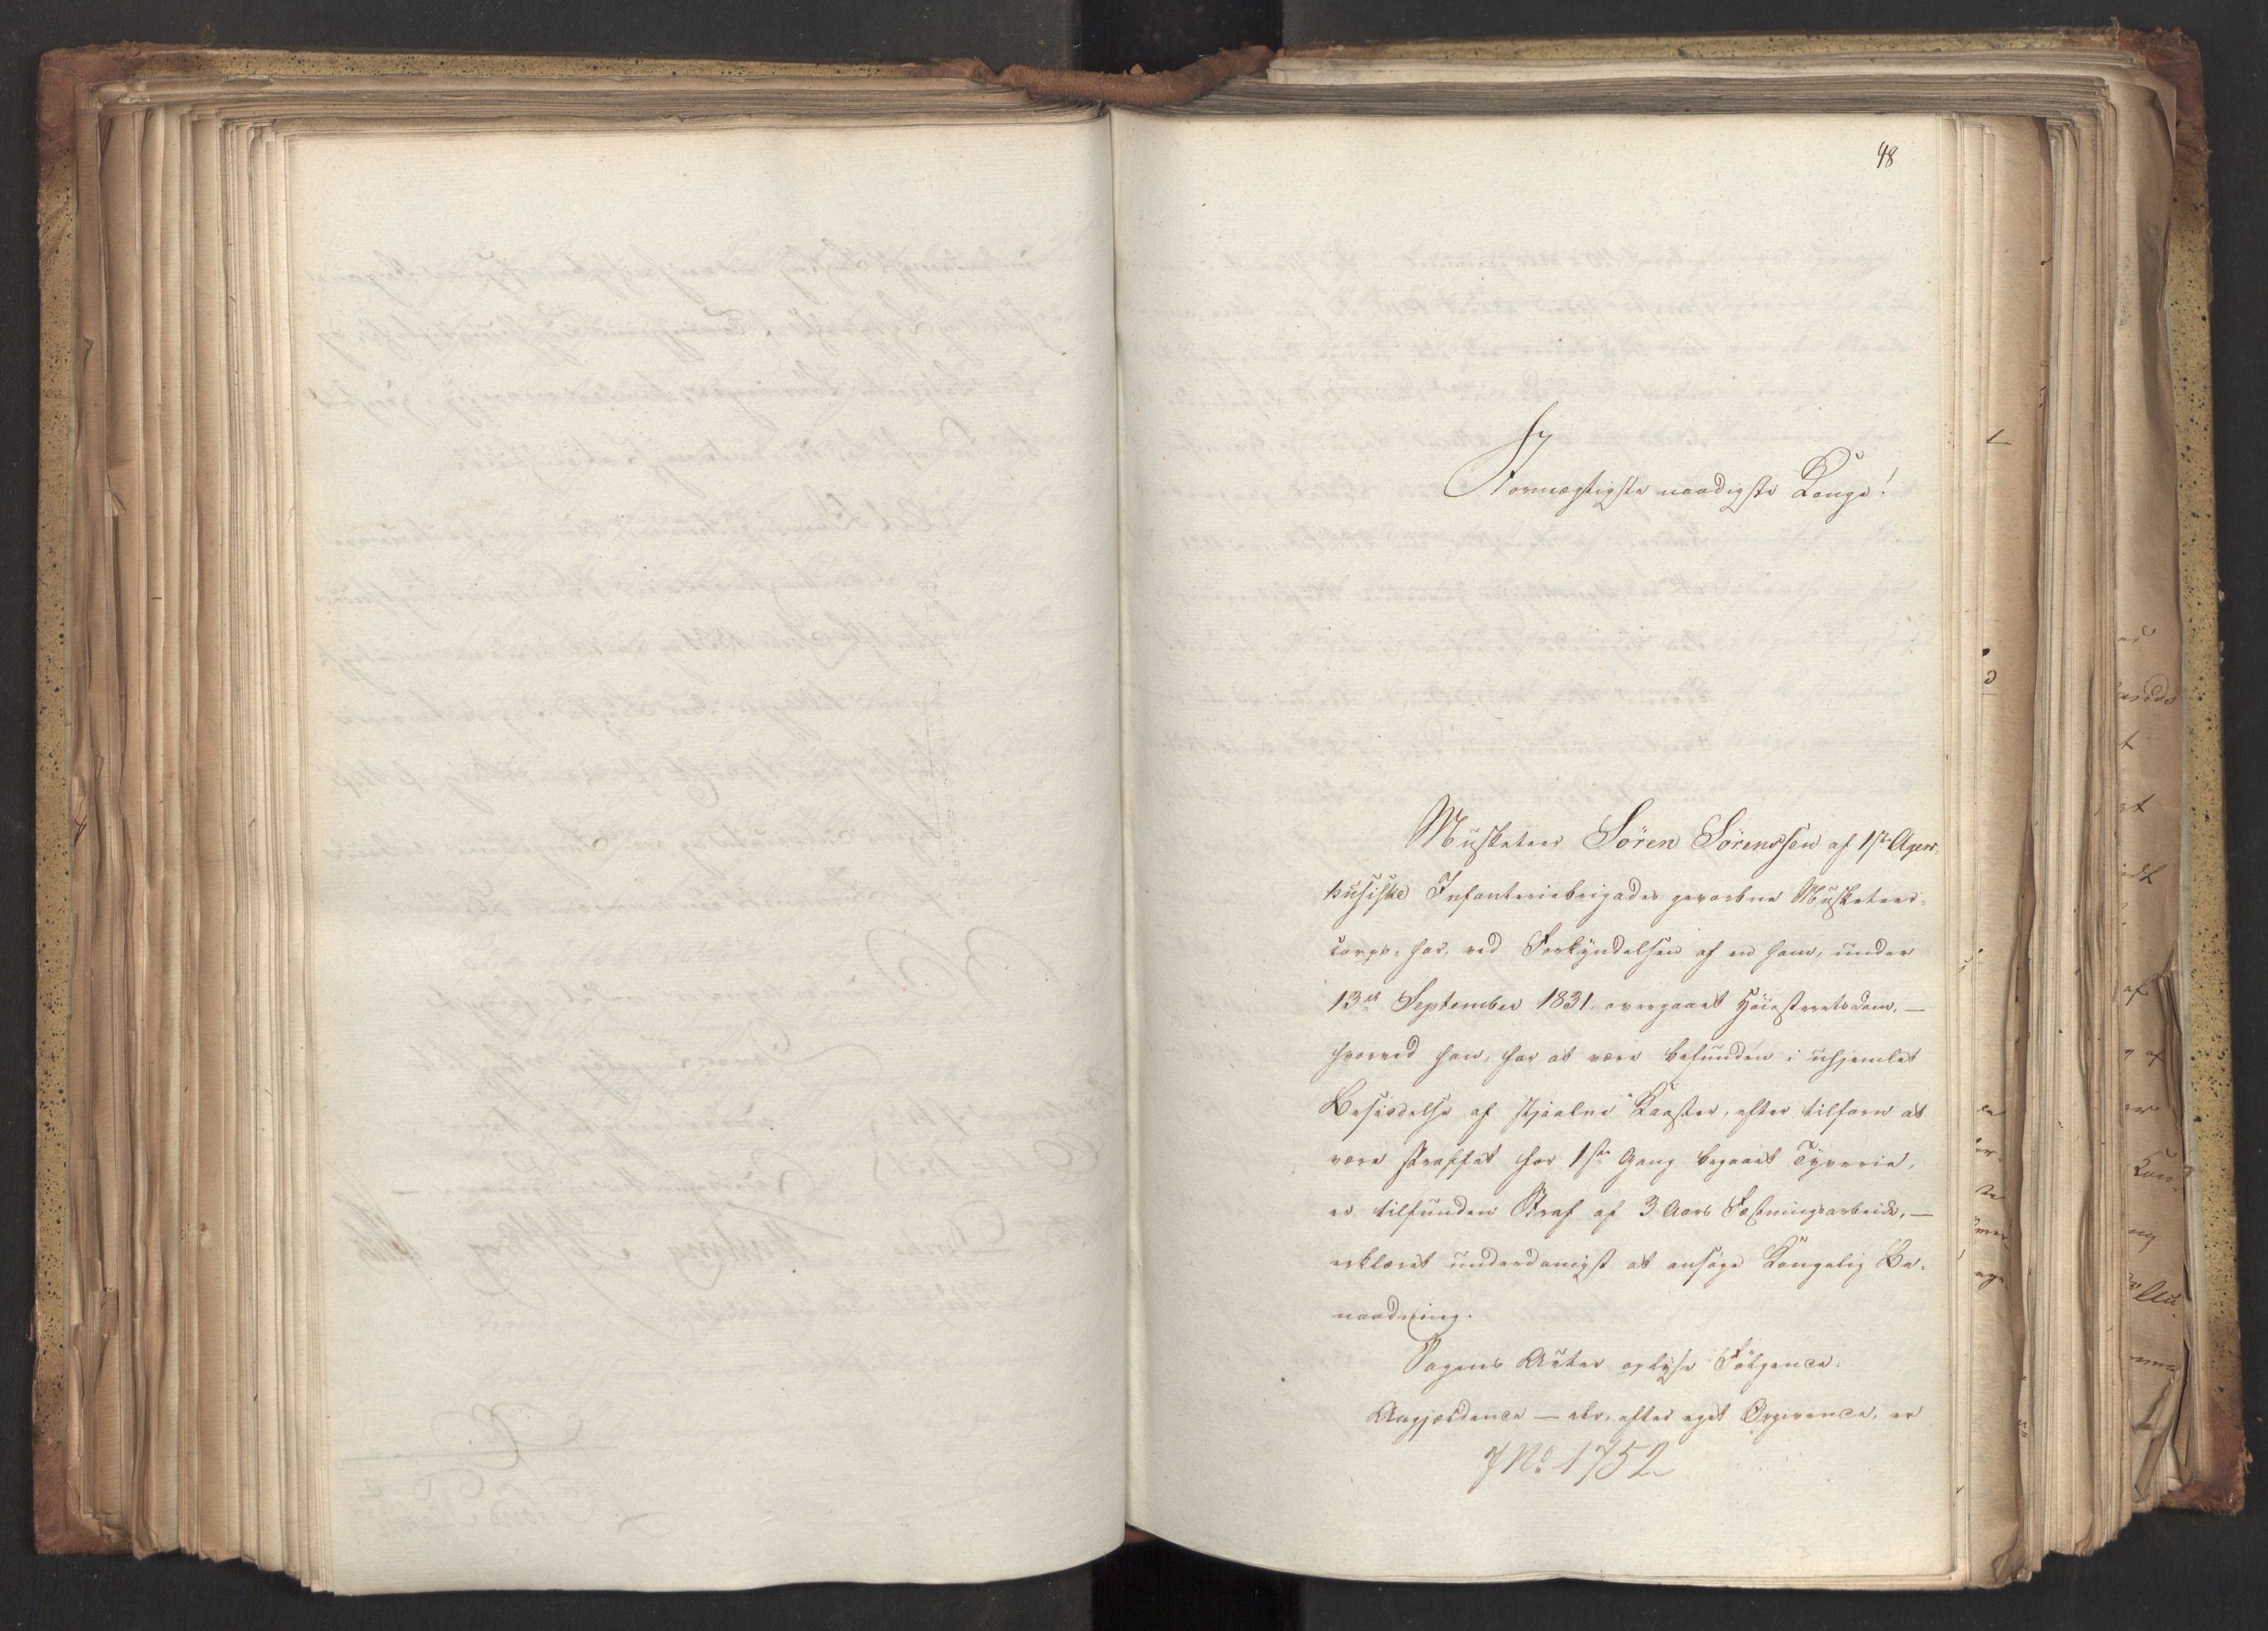 48
Stormægtigste naadigste Konge!
Musketeer Sören Sörenssen af 1ste Agers-
husiske Infanteriebrigades gevorbne Musketeer-
corps, har, ved Forkyndelsen af en ham, under
13de September 1831, overgaaet Höiesteretsdom, —
hvorved han, for at være befunden i uhjemlet
Besiddelse af stjaalne Koster, efter tilforn at
være straffet for 1ste Gang begaaet Tyverie,
er tilfunden Straf af 3 Aars Fæstningsarbeide, —
erklæret underdanigst at ansöge Kongelig Be-
naadning.
Sagens Akter oplyse Fölgende:
Angjeldende — der, efter eget Opgivende, er
J No 1752